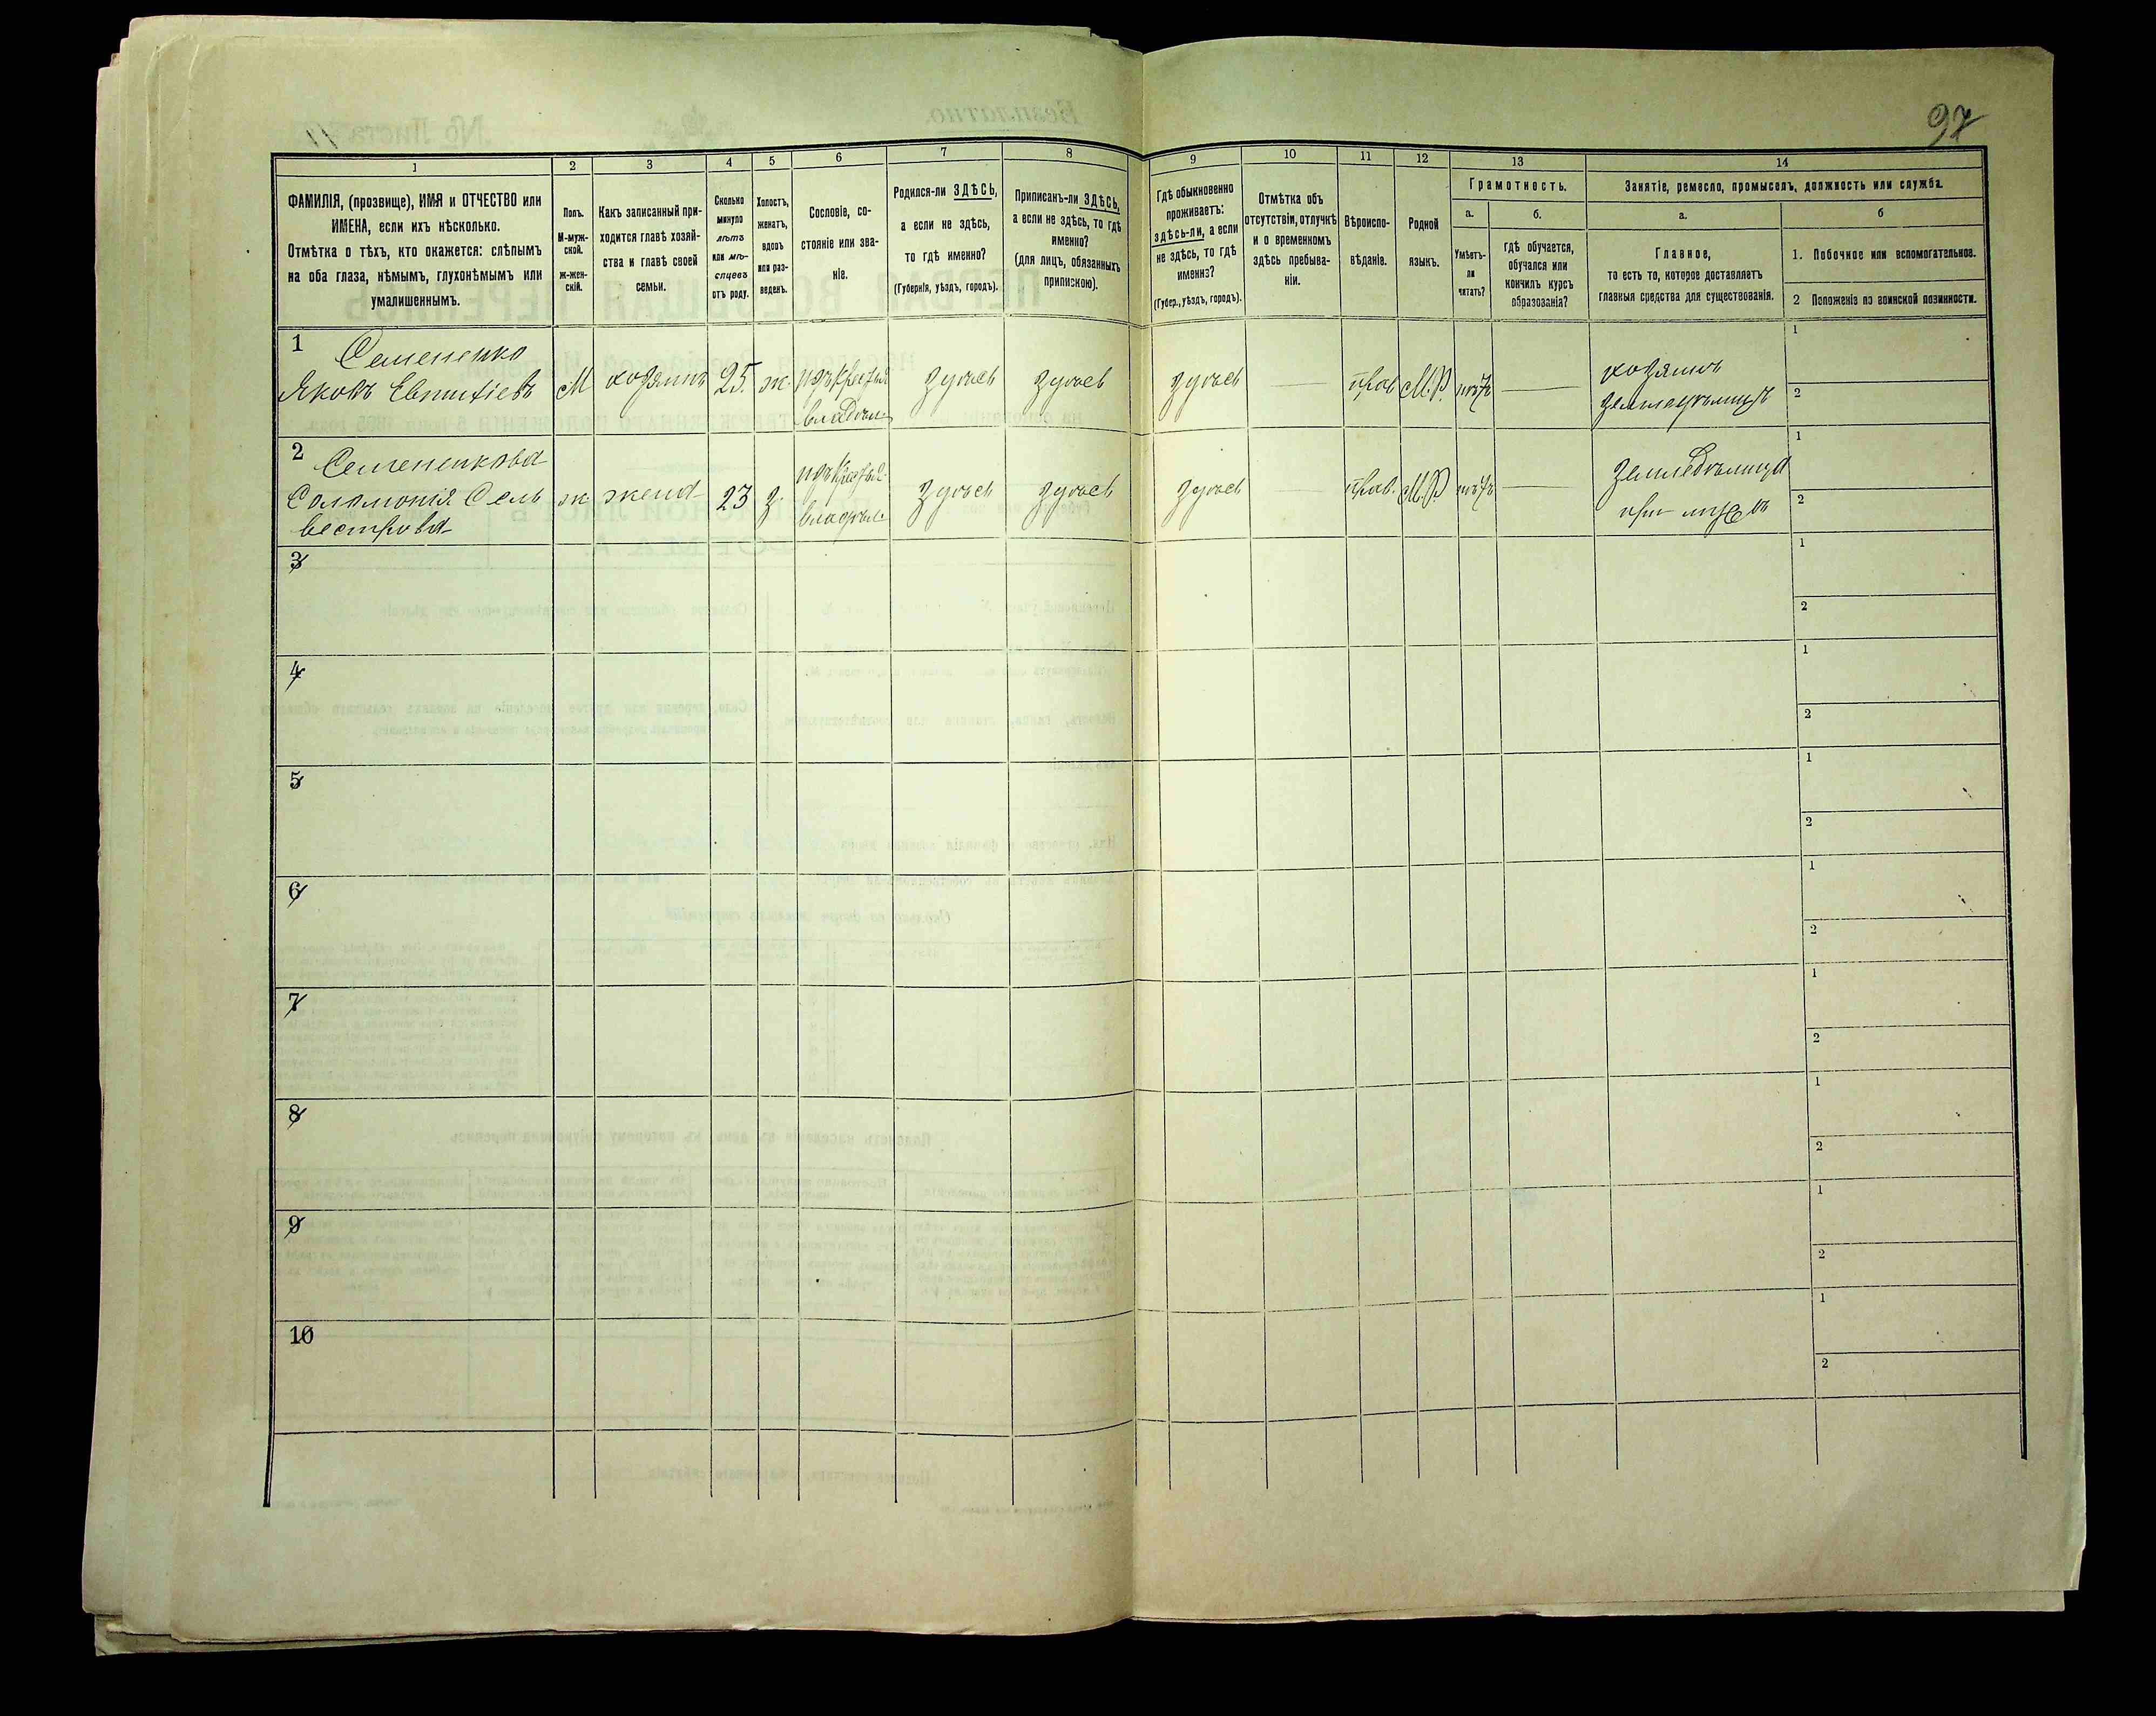 97
1
2
3
4
5
6
7
8
9
10
11
12
13
14
ФАМИЛІЯ, (прозвище), ИМЯ и ОТЧЕСТВО или
ИМЕНА, если ихъ нѣсколько.
Отмѣтка о тѣхъ, кто окажется: слѣпымъ
на оба глаза, нѣмымъ, глухонѣмымъ или
умалишеннымъ.
Полъ.
М-муж-
ской.
ж-жен-
скій.
Какъ записанный при-
ходится главѣ хозяй-
ства и главѣ своей
семьи.
Сколько
минуло
лѣтъ
или мѣ-
сяцевъ
отъ роду.
Холостъ,
женатъ,
вдовъ
или раз-
веденъ.
Сословіе, со-
стояніе или зва-
ніе.
Родился-ли ЗДѢСЬ,
а если не здѣсь,
то гдѣ именно?
(Губернія, уѣздъ, городъ).
Приписанъ-ли ЗДѢСЬ,
а если не здѣсь, то гдѣ
именно?
(для лицъ, обязанныхъ
припискою).
Гдѣ обыкновенно
проживаетъ:
здѣсь-ли, а если
не здѣсь, то гдѣ
именно?
(Губер., уѣздъ, городъ).
Отмѣтка объ
отсутствіи, отлучкѣ
и о временномъ
здѣсь пребыва-
ніи.
Вѣроиспо-
вѣданіе.
Родной
языкъ.
Грамотность.
а.
б.
Умѣетъ-
ли
читать?
гдѣ обучается,
обучался или
кончилъ курсъ
образованія?
Занятіе, ремесло, промыселъ, должность или служба.
а.
б
Главное,
то есть то, которое доставляетъ
главныя средства для существованія.
1. Побочное или вспомогательное.
2 Положеніе по воинской повинности.
1
Семененко
Яковъ Евтихіевъ
М
хозяинъ
25.
ж.
изъ крестья
владѣл.
здѣсь
здѣсь
здѣсь
прав
М.Р.
нѣтъ
хозяинъ
земледѣлецъ
1
2
2
Семененкова
Соломонія Сель
вестрова
ж
жена
23
з.
изъ крестья.
владѣл.
здѣсь
здѣсь
здѣсь
прав.
М.Р.
нѣтъ
земледѣлица
при мужѣ
1
2
3
1
2
4
1
2
5
1
2
6
1
2
7
1
2
8
1
2
9
1
2
10
1
2